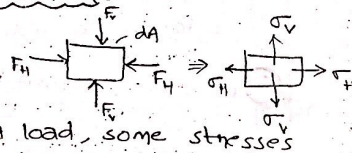 Fv
dA
FH
FH
Fv
⇒
σv
σH
σv
load, some stresses